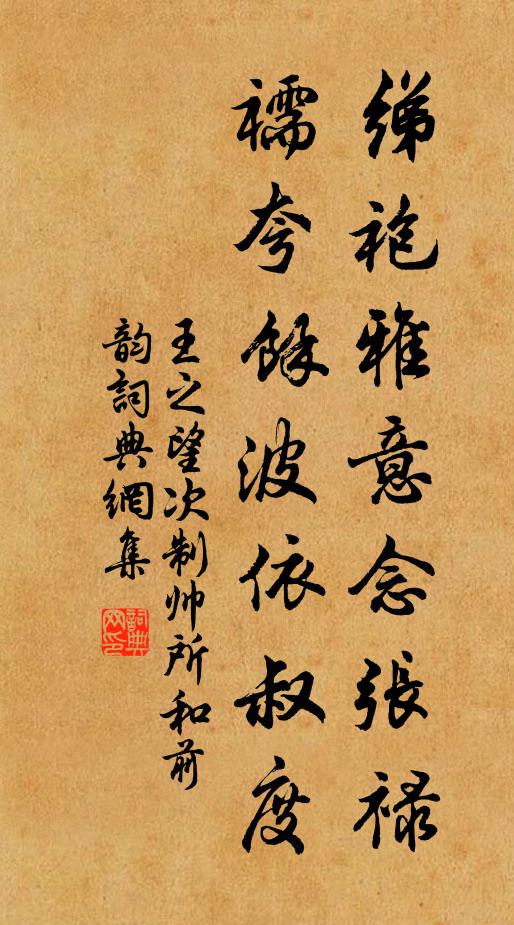 綈袍雅意念張禄
襦夸餘波依叔度
王之望次制帅所和前
韵詞典網集
詞典网印